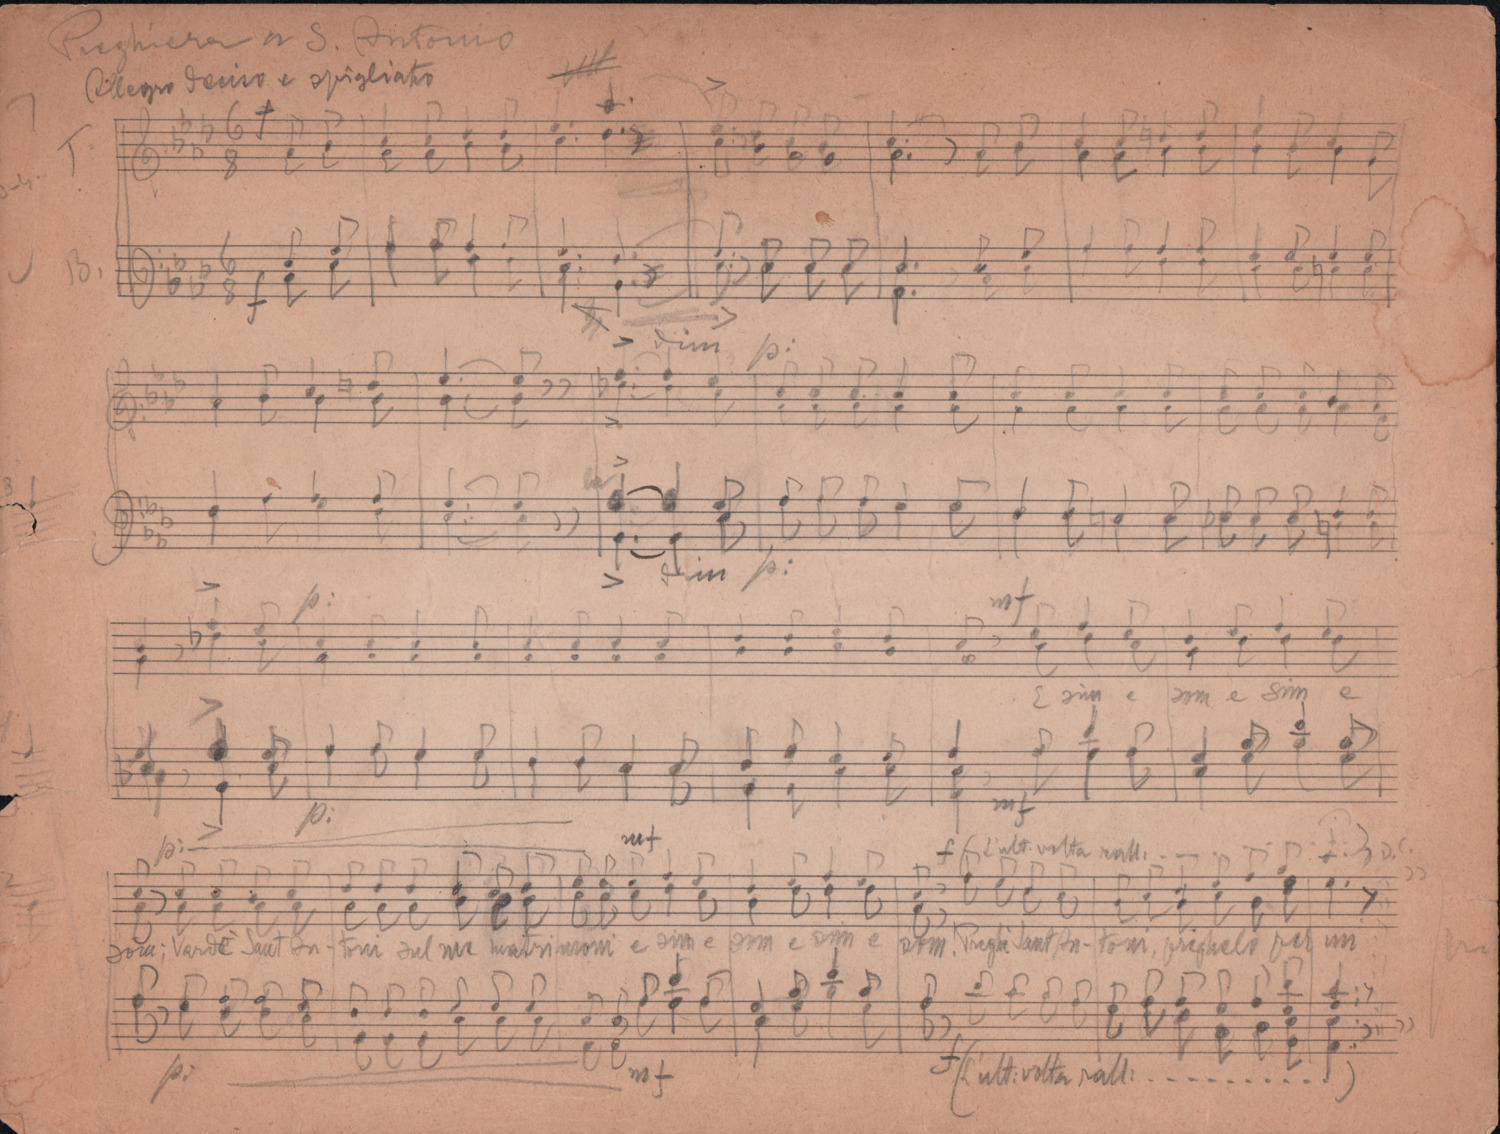 Preghiera a S. Antonio
Allegro deciso e spigliato
f
T.
6
8
B.
6
8
f
dim p:
dim p:
p:
mf
E sim e som e sim e
p:
mf
p:
mf
f (L'ult: volta rall: D.C.
som; Vardè Sant An- toni sul me matrimoni e sim e som e sim e som! Preghi Sant An- toni, preghelo per un
p:
mf
f (L'ult: volta rall: . . . . . . . . . . )